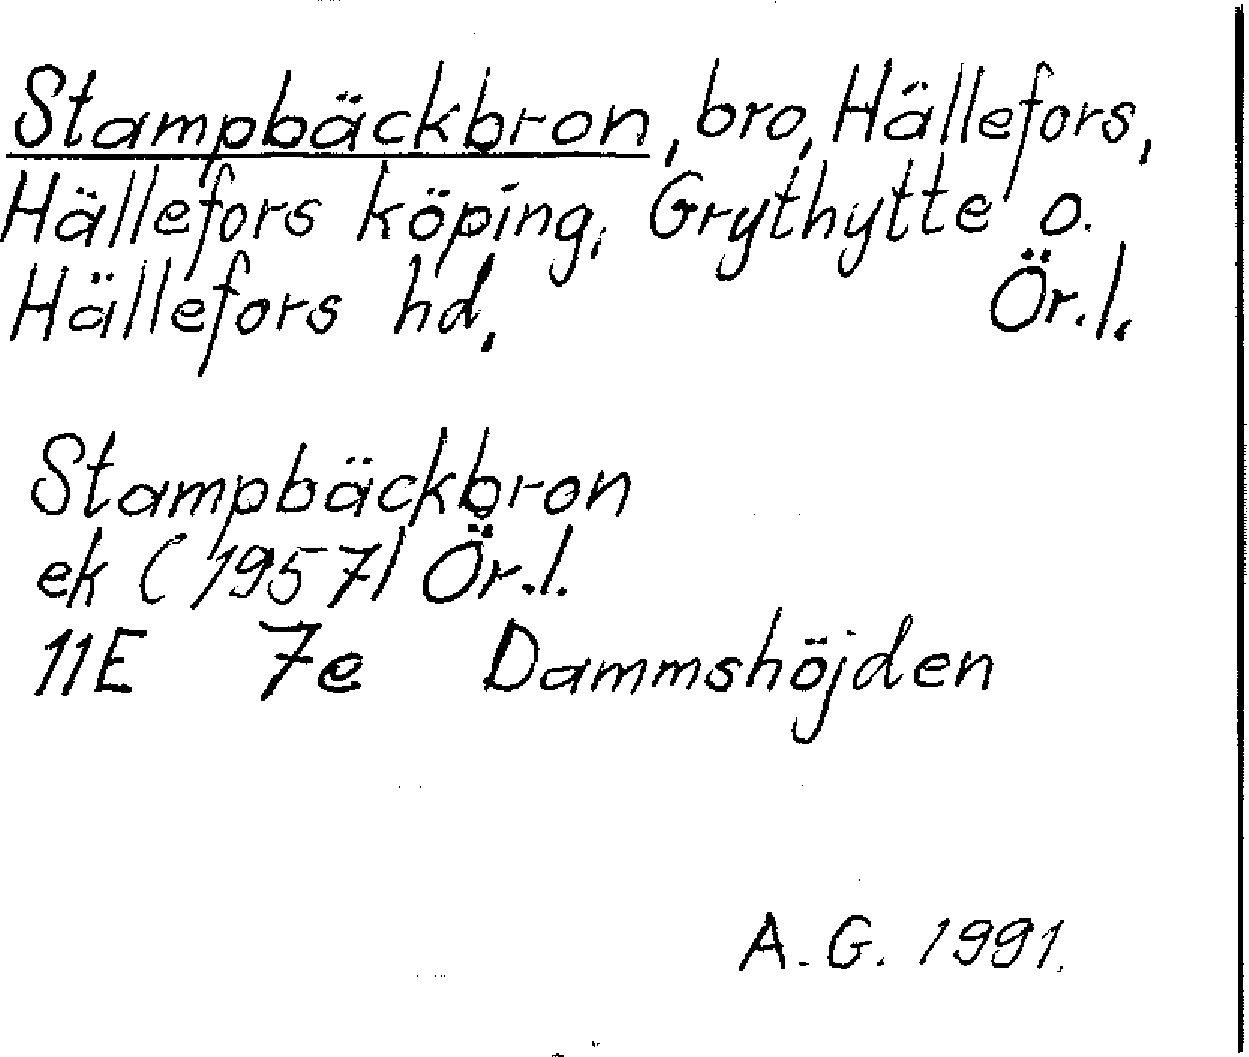 Stampbäckbron, bro, Hällefors,
Hällefors köping, Grythytte o.
Hällefors hd, Ör.l.
Stampbäckbron
ek (1957) Ör.l.
11E 7e Dammshöjden
A.G. 1991.